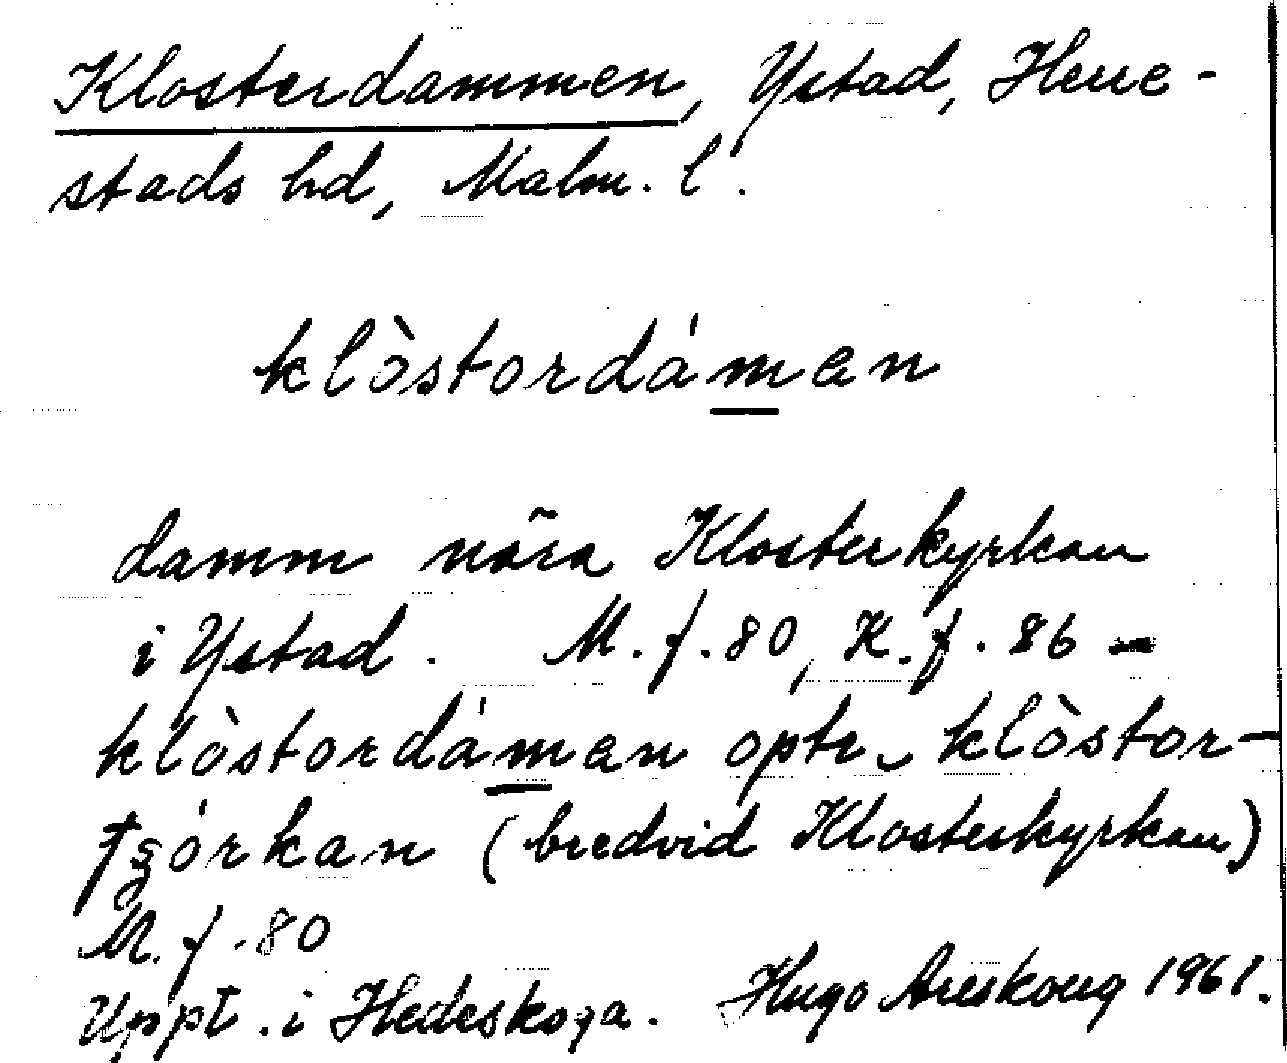 Klosterdammen, Ystad, Herre-
stads hd, Malm. l.
klòstordáman
damm nära Klosterkyrkan
i Ystad. M. f. 80, K. f. 86 –
klòstordáman optr klòstor-
tʂórkan (bredvid Klosterkyrkan)
M. f. 80
Uppt. i Hedeskoga. Hugo Areskoug 1961.